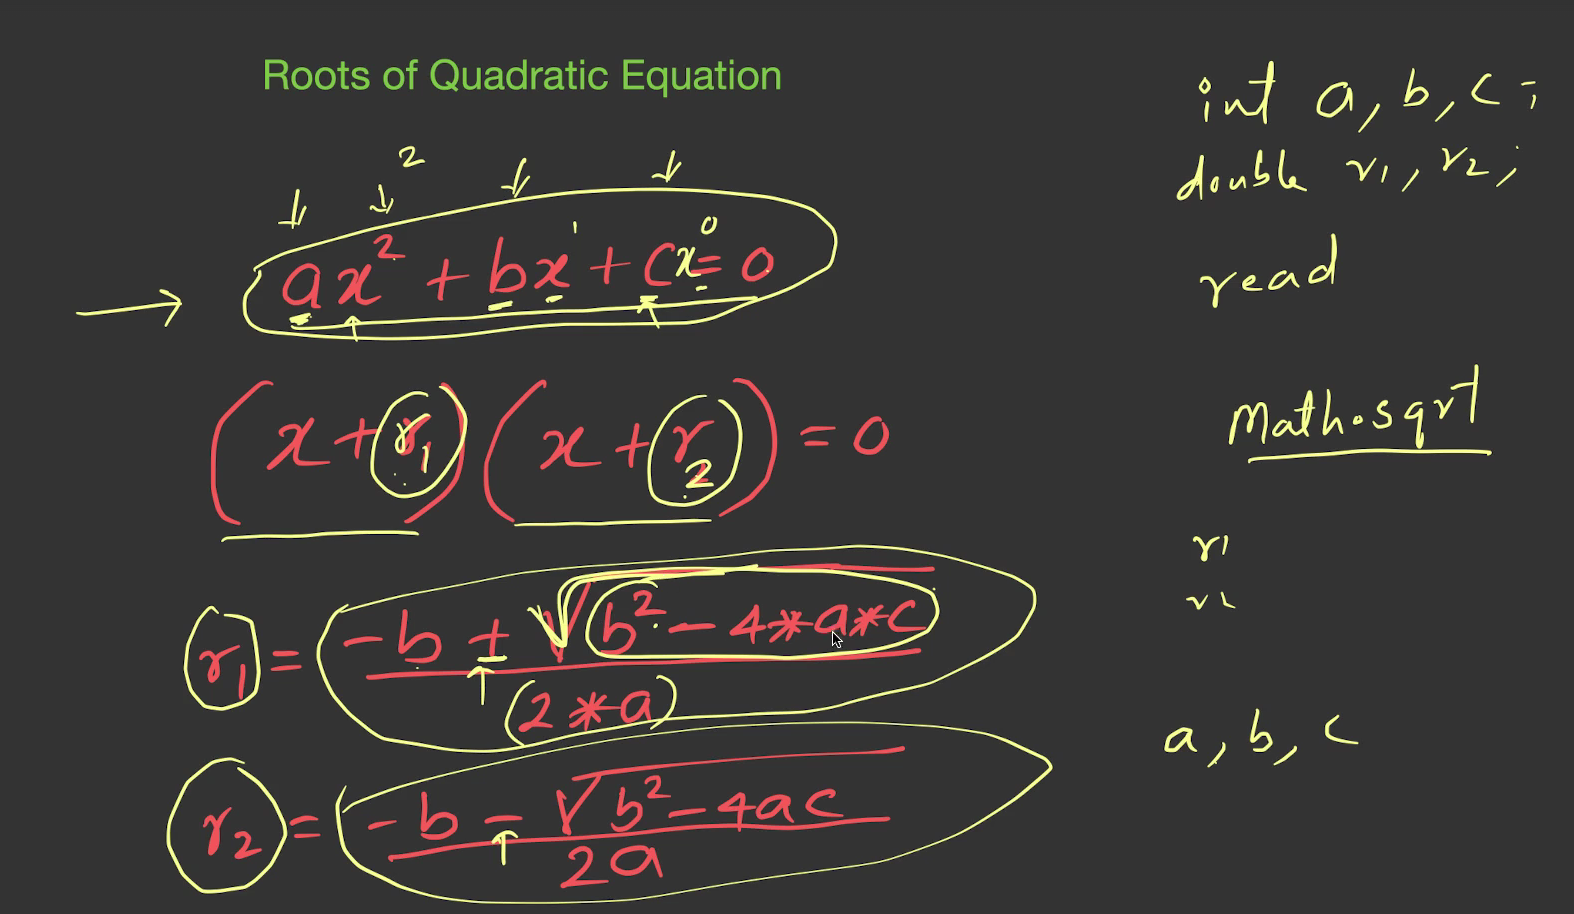 Roots of Quadratic Equation
2
ax² + bx¹ + cx⁰ = 0
(x + r₁) (x + r₂) = 0
r₁ = -b ± √b² - 4*a*c
(2*a)
r₂ = -b - √b² - 4ac
2a
int a, b, c;
double r1, r2;
read
Math.sqrt
r1
r2
a, b, c